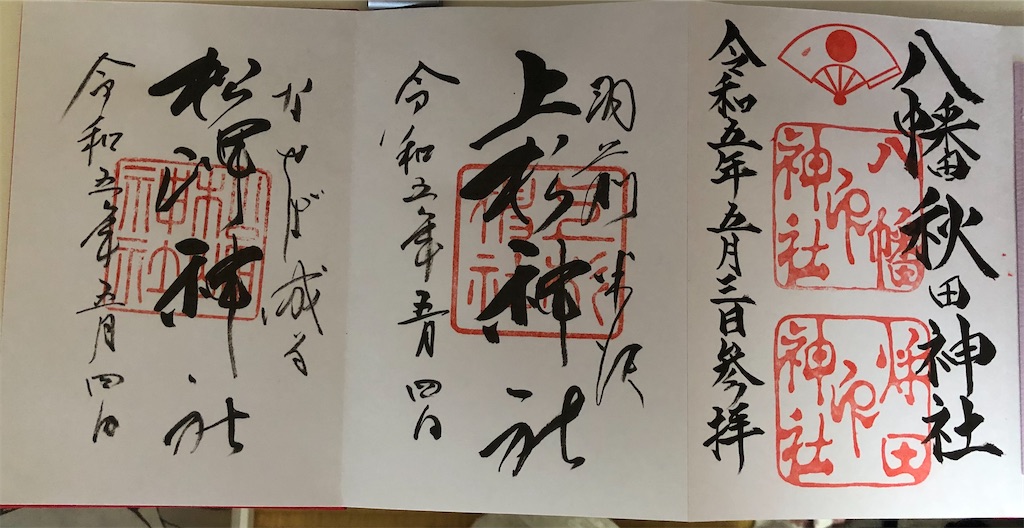 八幡秋田神社
八幡
印
神社
秋田
印
神社
令和五年五月三日参拝
羽前米沢
上杉神社
上杉
神社
令和五年五月四日
なせば成る
松岬神社
松岬
神社
令和五年五月四日